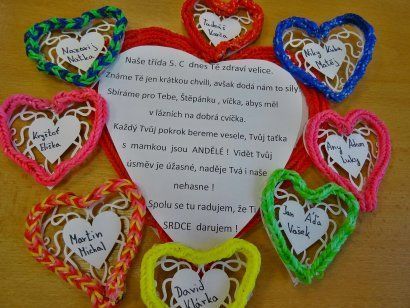 Naše třída 5. C dnes Tě zdraví velice.
Známe Tě jen krátkou chvíli, avšak dodá nám to síly
Sbíráme pro Tebe, Štěpánku , víčka, abys měl
v lázních na dobrá cvička.
Každý Tvůj pokrok bereme vesele, Tvůj taťka
s mamkou jsou ANDĚLÉ ! Vidět Tvůj
úsměv je úžasné, naděje Tvá i naše
nehasne !
Spolu se tu radujem, že Ti
SRDCE darujem !
Tadeáš
Nazarij
Natka
Niky Kuba
Matěj
Kryštof
Eliška
Amy Adam
Martin
Michal
Jan Áďa
Vašek
David
Klárka